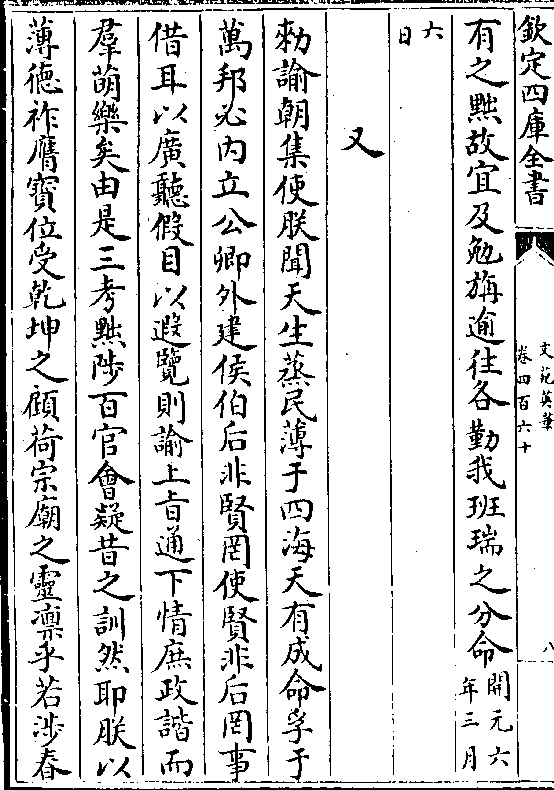 欽定四庫全書
文苑英華
卷四百六十
八
有之㸃故宜及勉旃遄往各勤我班瑞之分命開元六年三月
六日
又
勑諭朝集使朕聞天生蒸民薄于四海天有成命孚于
萬邦必内立公卿外建侯伯后非賢罔使賢非后罔事
借耳以廣聽假目以遐覽則諭上㫖通下情庶政諧而
羣萌樂矣由是三考黜陟百官會疑昔之訓然耶朕以
薄徳祚膺寳位受乾坤之顧荷宗廟之靈凛乎若涉春